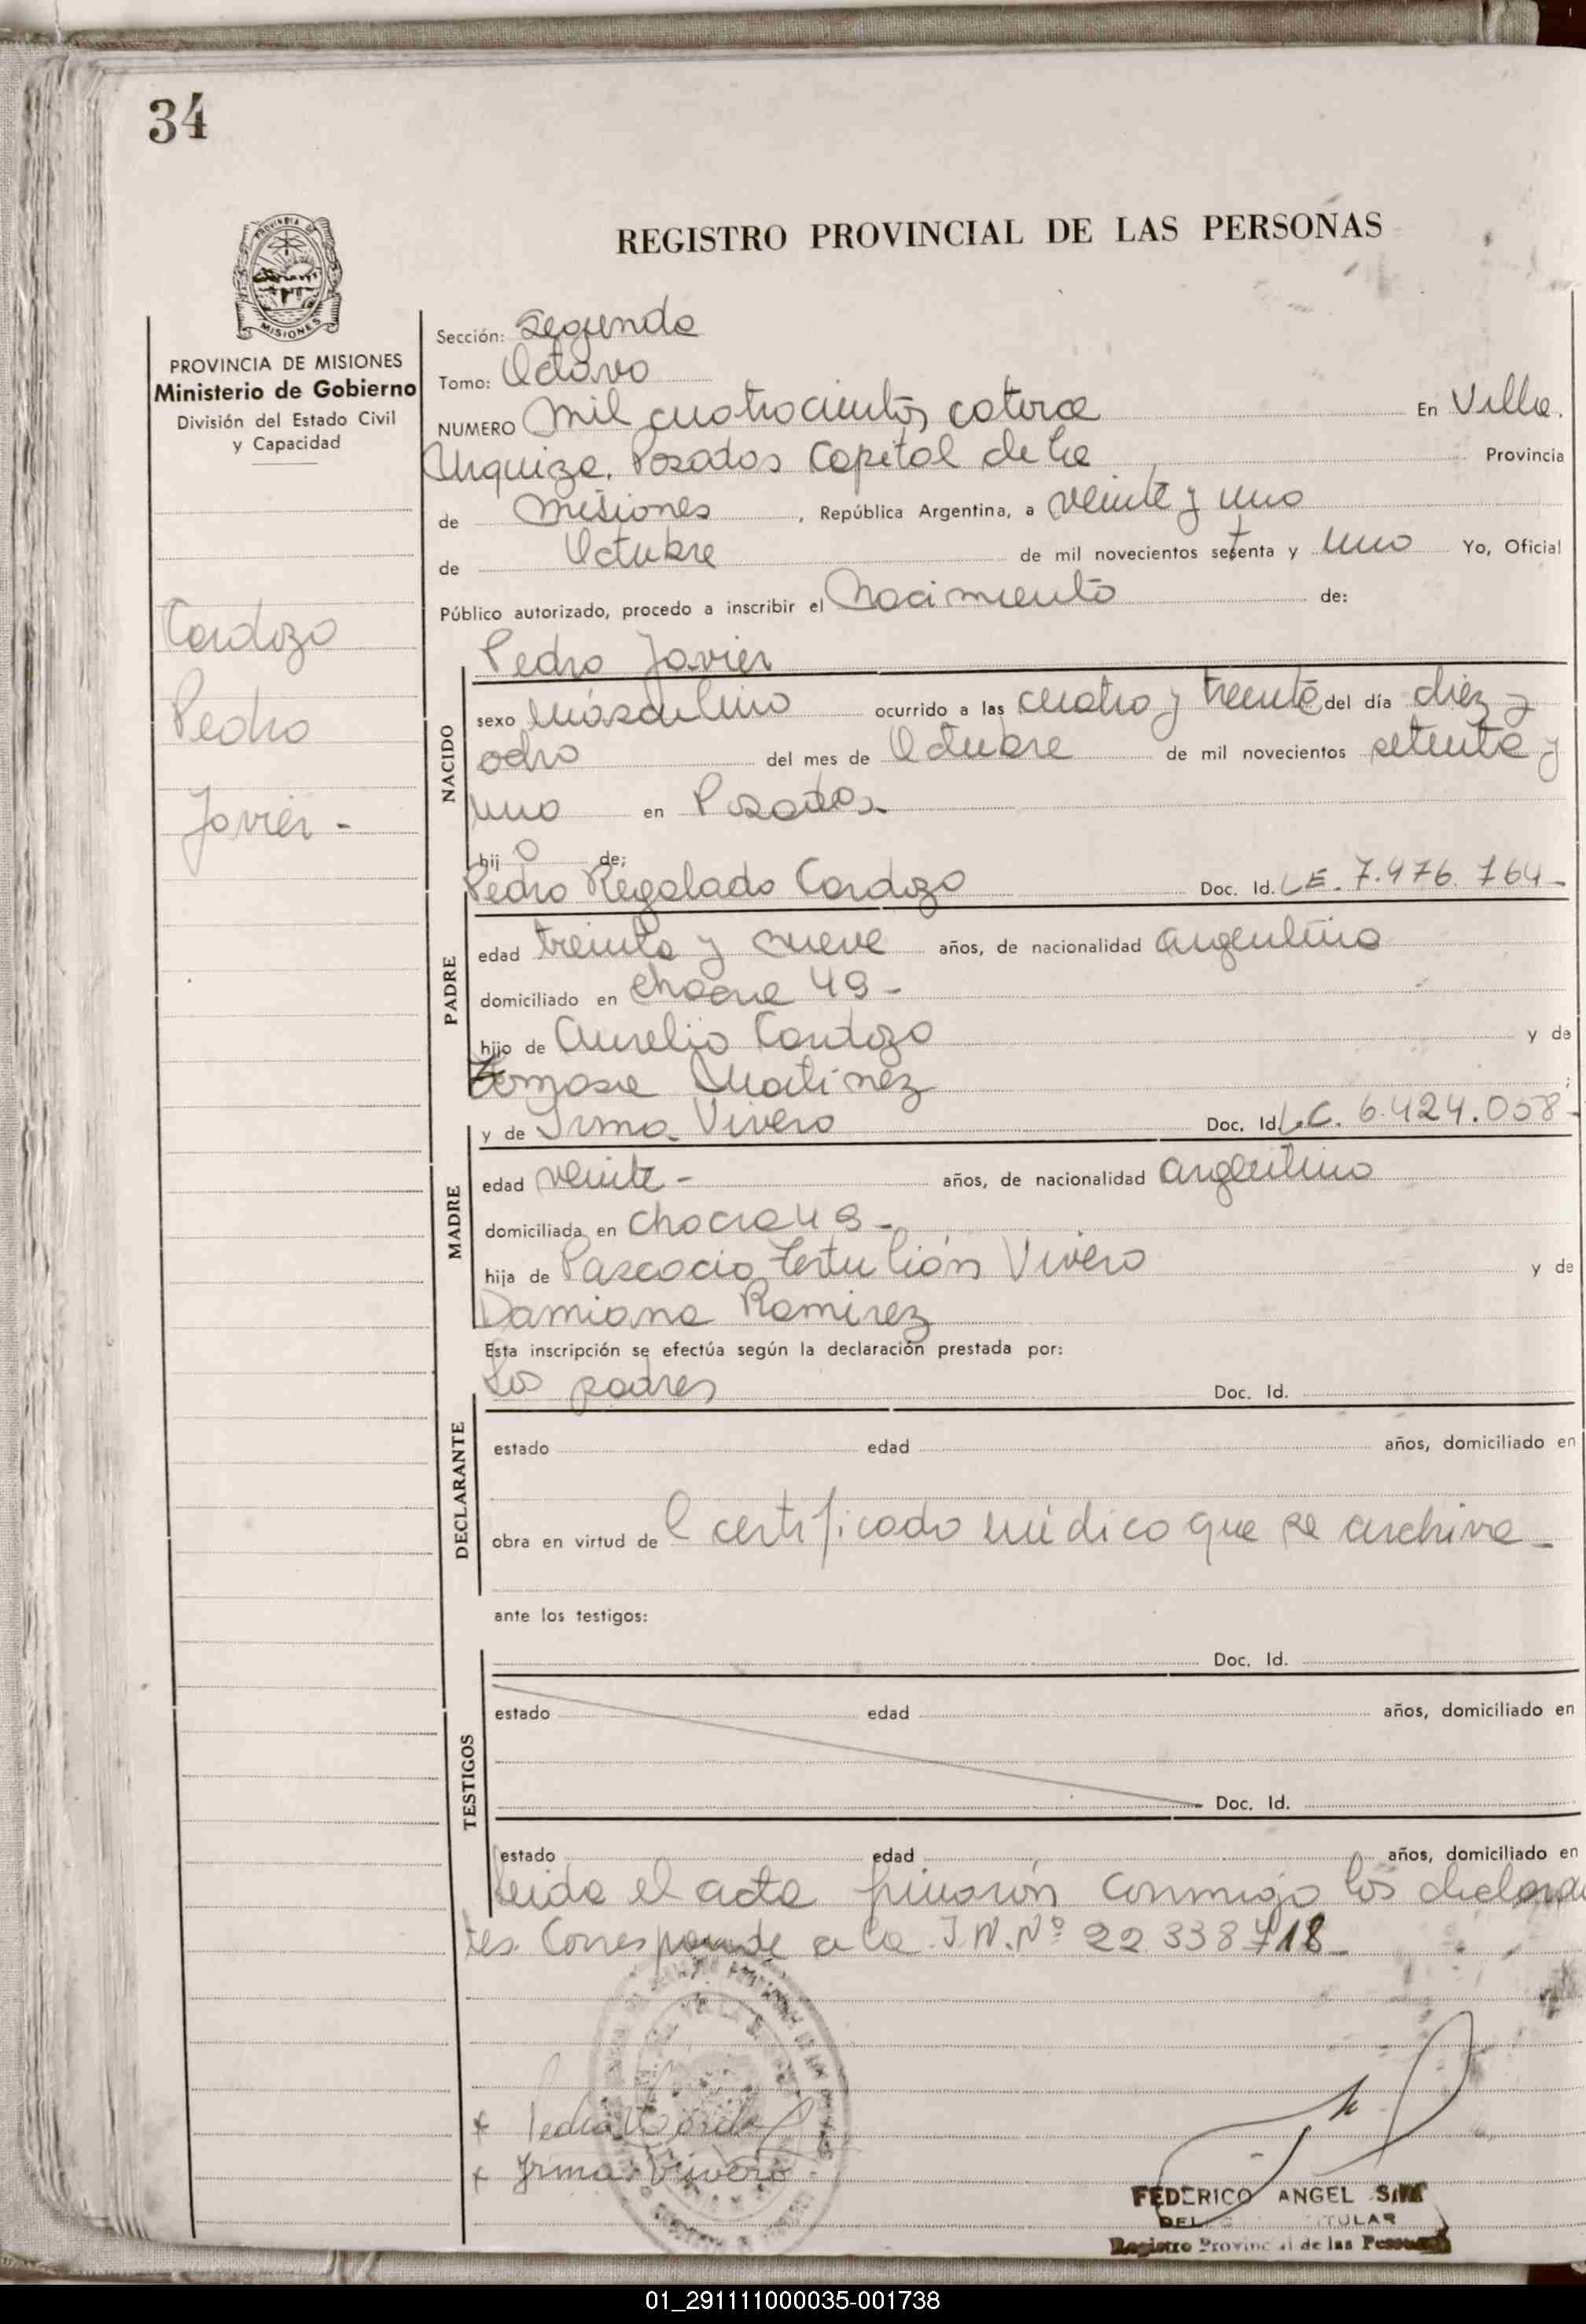 34
REGISTRO PROVINCIAL DE LAS PERSONAS
PROVINCIA DE
MISIONES
PROVINCIA DE MISIONES
Ministerio de Gobierno
División del Estado Civil
y Capacidad
Cardozo
Pedro
Javier -
Sección: Segunda
Tomo: Octavo
NUMERO Mil cuatrocientos catorce En Villa
Urquiza. Posadas Capital de la Provincia
de Misiones, República Argentina, a veinte y uno
de Octubre de mil novecientos setenta y uno Yo, Oficial
Público autorizado, procedo a inscribir el Nacimiento de:
Pedro Javier
NACIDO
sexo Masculino ocurrido a las cuatro y treinta del día diez y
ocho del mes de Octubre de mil novecientos setenta y
uno en Posadas
hij o de;
Pedro Regalado Cardozo Doc. Id. LE. 7.476.764-
PADRE
edad treinta y nueve años, de nacionalidad argentino
domiciliado en chacra 49 -
hijo de Aurelio Cardozo y de
Tomasa Matinez ;
y de Irma Vivero Doc. Id. L.C. 6.424.058-
MADRE
edad veinte - años, de nacionalidad argentino
domiciliada en chacra 49 -
hija de Vivero y de
Damiana Ramirez
Esta inscripción se efectúa según la declaración prestada por:
Los padres Doc. Id.
DECLARANTE
estado edad años, domiciliado en
obra en virtud de l certificado médico que se archiva -
ante los testigos:
Doc. Id.
TESTIGOS
estado edad años, domiciliado en
Doc. Id.
estado edad años, domiciliado en
Leida el acta firmarón conmigo los declaran
tes. Corresponde a la I.N.Nº 22 338 718
x Pedro
x Irma Vivero
FEDERICO ANGEL
TITULAR
Registro Provincial de las Personas
01_291111000035-001738